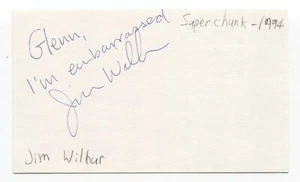 Superchunk - 1994
Glenn,
I'm embarrassed
Jim Wilbur
Jim Wilbur